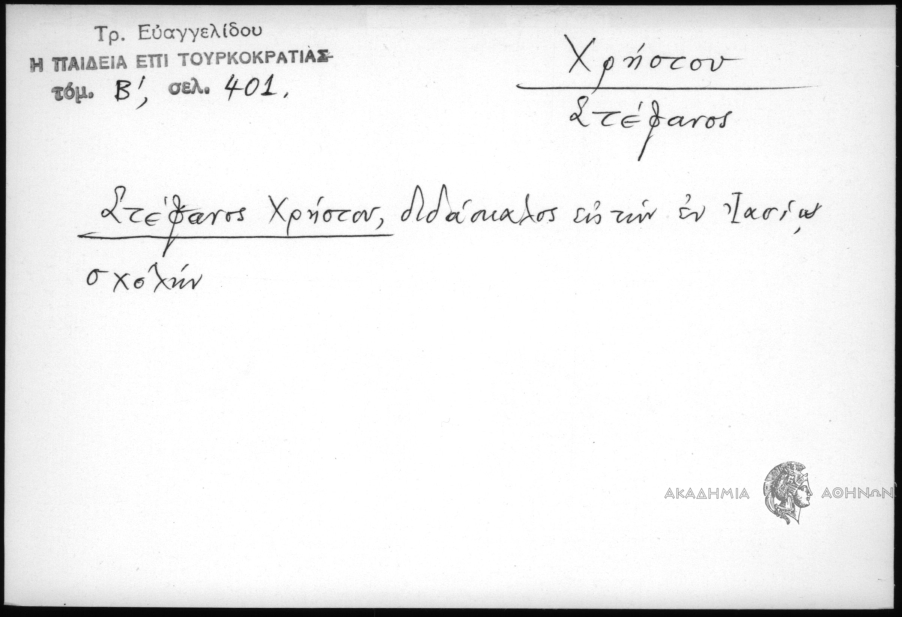 Τρ. Εὐαγγελίδου
Η ΠΑΙΔΕΙΑ ΕΠΙ ΤΟΥΡΚΟΚΡΑΤΙΑΣ
τόμ. Β', σελ. 401.
Χρήστου
Στέφανος
Στέφανος Χρήστου, διδάσκαλος εἰς τὴν ἐν Ἰασίῳ
σχολήν
ΑΚΑΔΗΜΙΑ ΑΘΗΝΩΝ